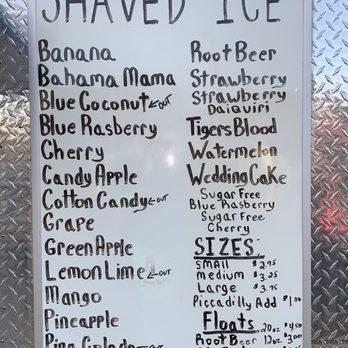 SHAVED ICE
Banana
Bahama Mama
Blue Coconut ←OUT
Blue Rasberry
Cherry
Candy Apple
Cotton Candy ←OUT
Grape
Green Apple
Lemon Lime ←OUT
Mango
Pineapple
Pina Colada ←OUT
Root Beer
Strawberry
Strawberry
Daiquiri
Tigers Blood
Watermelon
Wedding Cake
Sugar Free
Blue Rasberry
Sugar Free
Cherry
SIZES
Small $2.75
medium $3.25
Large $3.75
Piccadilly Add $1.00
Floats 20oz $4.50
Root Beer 12oz $3.00